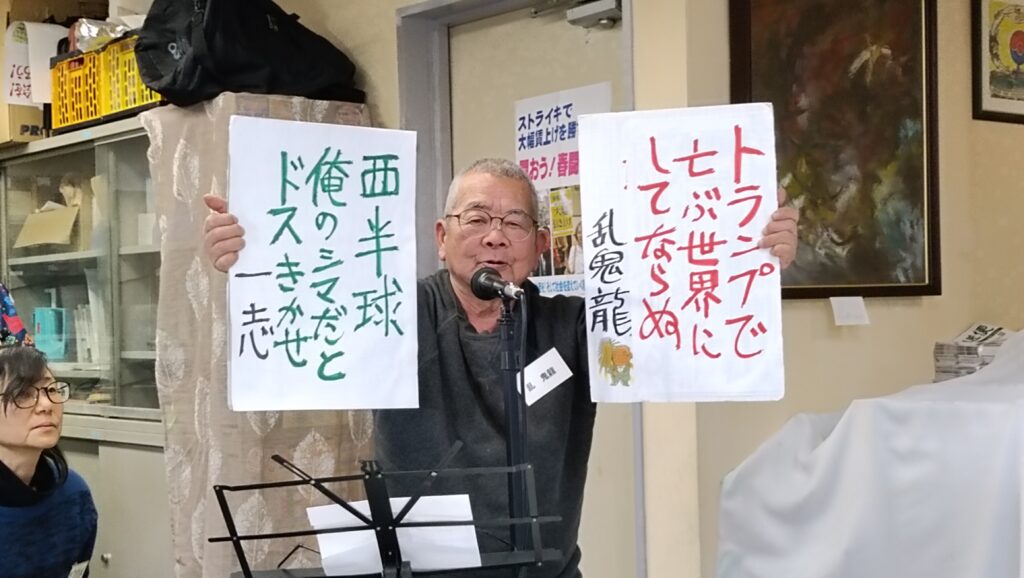 トランプで
亡ぶ世界に
してならぬ
乱鬼龍
西半球
俺のシマだと
ドスきかせ
一志
ストライキで
大幅賃上げを勝
闘おう!春闘
乱 鬼龍
PRO